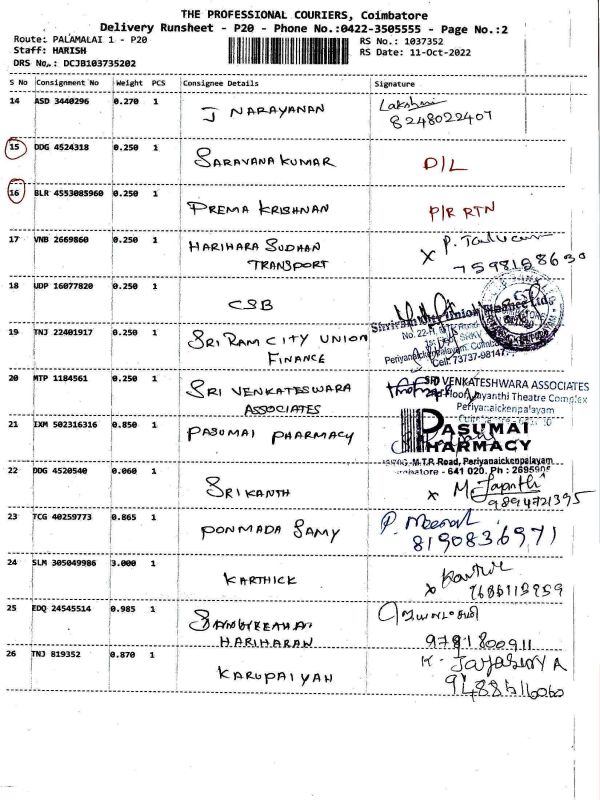 THE PROFESSIONAL COURIERS, Coimbatore
Delivery Runsheet - P20 - Phone No.:0422-3505555 - Page No.:2
Route: PALAMALAI 1 - P20 RS No.: 1037352
Staff: HARISH RS Date: 11-Oct-2022
DRS No.: DCJB103735202
S No Consignment No Weight PCS Consignee Details Signature
14 ASD 3440296 0.270 1 J NARAYANAN
8248022407
15 DDG 4524318 0.250 1 SARAVANA KUMAR D/L
16 BLR 4553085960 0.250 1 PREMA KRISHNAN P/R RTN
17 VNB 2669860 0.250 1 HARIHARA SUDHAN
TRANSPORT
7598158630
18 UDP 16077820 0.250 1 CSB
19 TNJ 22401917 0.250 1 SRI RAM CITY UNION
FINANCE
20 MTP 1184561 0.250 1 SRI VENKATESWARA
ASSOCIATES
SRI VENKATESHWARA ASSOCIATES
Jayanthi Theatre Complex
Periyanaickenpalayam
21 IXM 502316316 0.850 1 PASUMAI PHARMACY
PASUMAI
PHARMACY
M.T.P. Road, Periyanaickenpalayam,
641 020. Ph :
22 DDG 4520540 0.060 1 SRIKANTH
X M. Jayanthi
9894721395
23 TCG 40259773 0.865 1 PONMADA SAMY
8190836971
24 SLM 305049986 3.000 1 KARTHICK
25 EDQ 24545514 0.985 1
HARIHARAN
9791800911
26 TNJ 819352 0.870 1 KARUPAIYAN
K. JAYASURYA